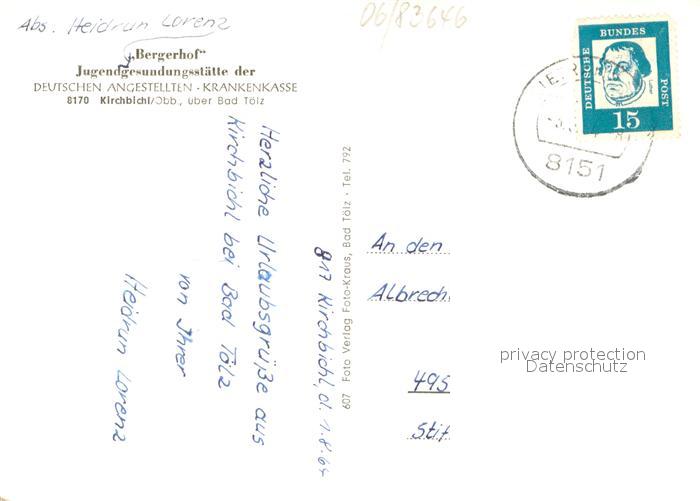 06/83646
Abs. Heidrun Lorenz
„Bergerhof"
Jugendgesundungsstätte der
DEUTSCHEN ANGESTELLTEN - KRANKENKASSE
8170 Kirchbichl/Obb., über Bad Tölz
Herzliche Urlaubsgrüße aus
Kirchbichl bei Bad Tölz
von Ihrer
Heidrun Lorenz
817 Kirchbichl, d. 1.8.64
607 Foto Verlag Foto-Kraus, Bad Tölz · Tel. 792
DEUTSCHE
BUNDES
POST
Luther
15
8151
An den
Albrech
495
Stif
privacy protection
Datenschutz